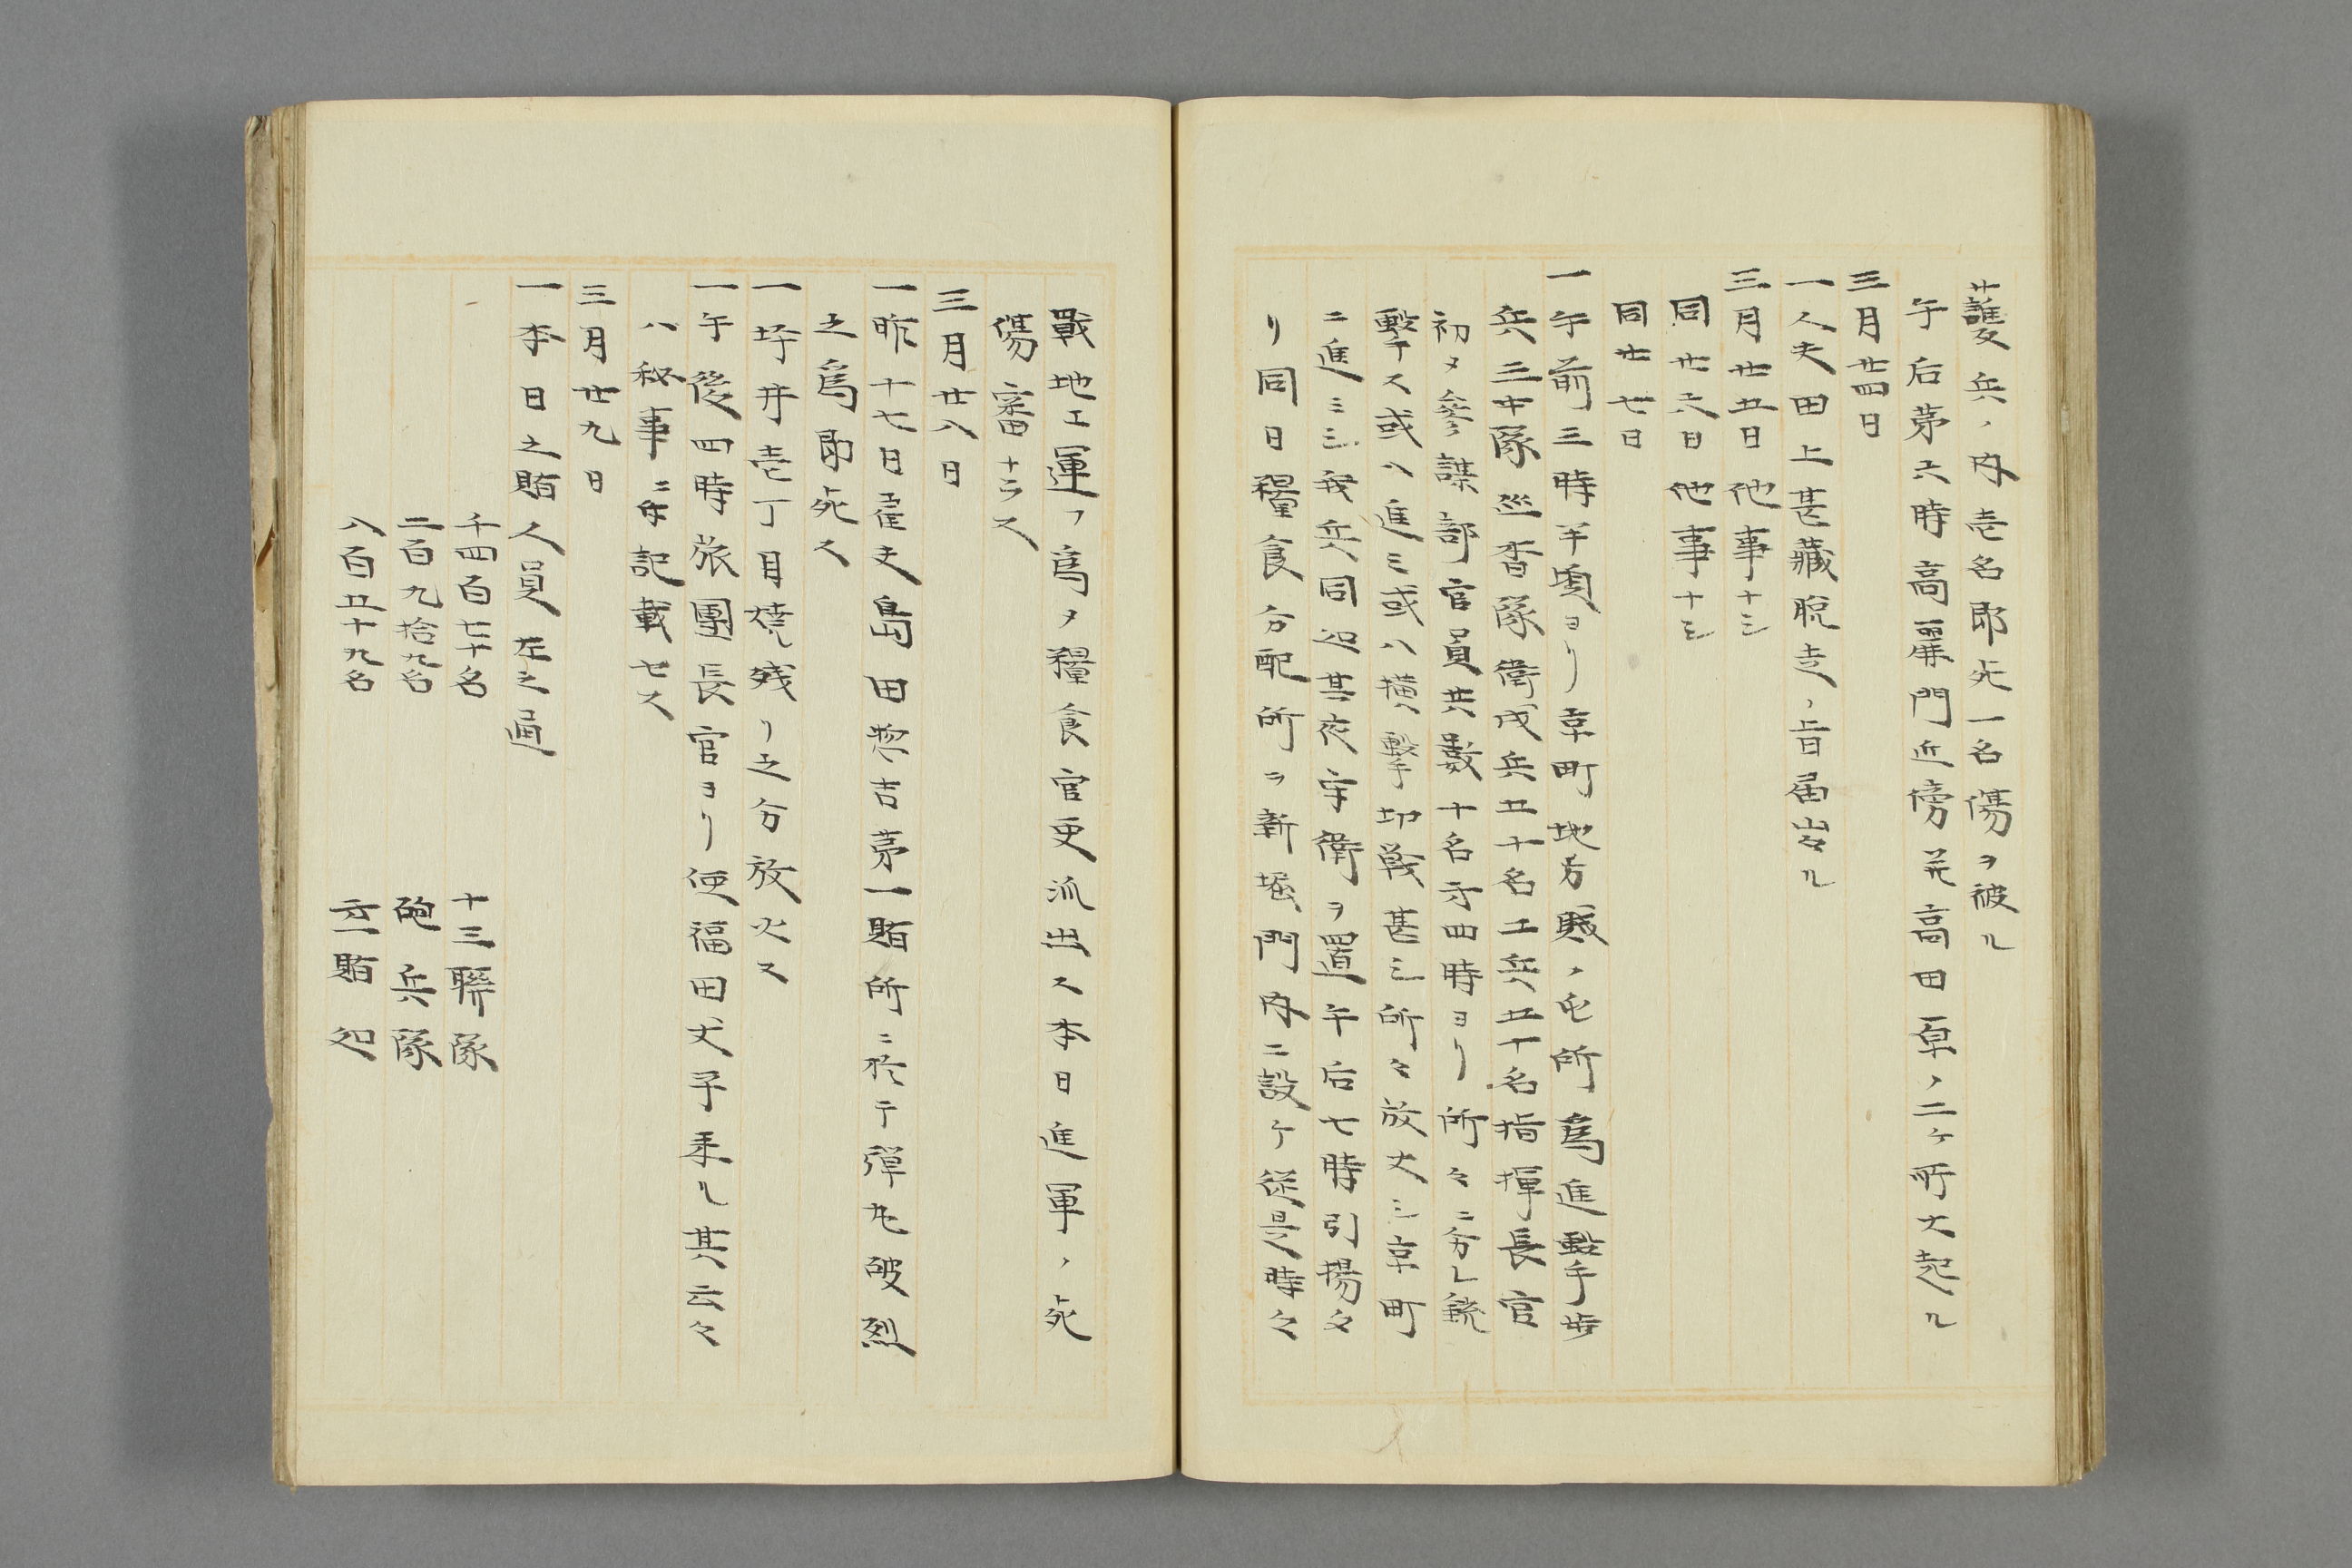 護兵ノ内壱名即死一名傷ヲ被ル
午后第六時高麗門近傍并高田原ノ二ケ所火起ル
三月廿四日
一人夫田上甚藏脱走ノ旨届出ル
三月廿五日他事ナシ
同廿六日他事ナシ
同廿七日
一午前三時半頃ヨリ京町地方賊ノ屯所為進撃歩
兵三中隊巡査隊衛戍兵五十名工兵五十名指揮長官
初メ参謀部官員共数十名才四時ヨリ所々ニ分レ銃
撃ス或ハ進ミ或ハ横撃切戦甚シ所々放火シ京町
ニ進ミシ我兵同処其夜守衛ヲ置午后七時引揚タ
リ同日糧食分配所ヲ新堀門内ニ設ケ従是時々
戦地工運フ為メ糧食官吏派出ス本日進軍ノ死
傷審ナラス
三月廿八日
一昨十七日雇夫島田惣吉第一賄所ニ於テ弾丸破烈
之為即死ス
一坪井壱丁目焼残リ之分放火ス
一午後四時旅團長官ヨリ使福田丈平来ル其云々
ハ秘事ニ付記載セス
三月廿九日
一本日之賄人員左之通
千四百七十名　十三聯隊
二百九拾九名　砲兵隊
八百五十九名　才一賄処